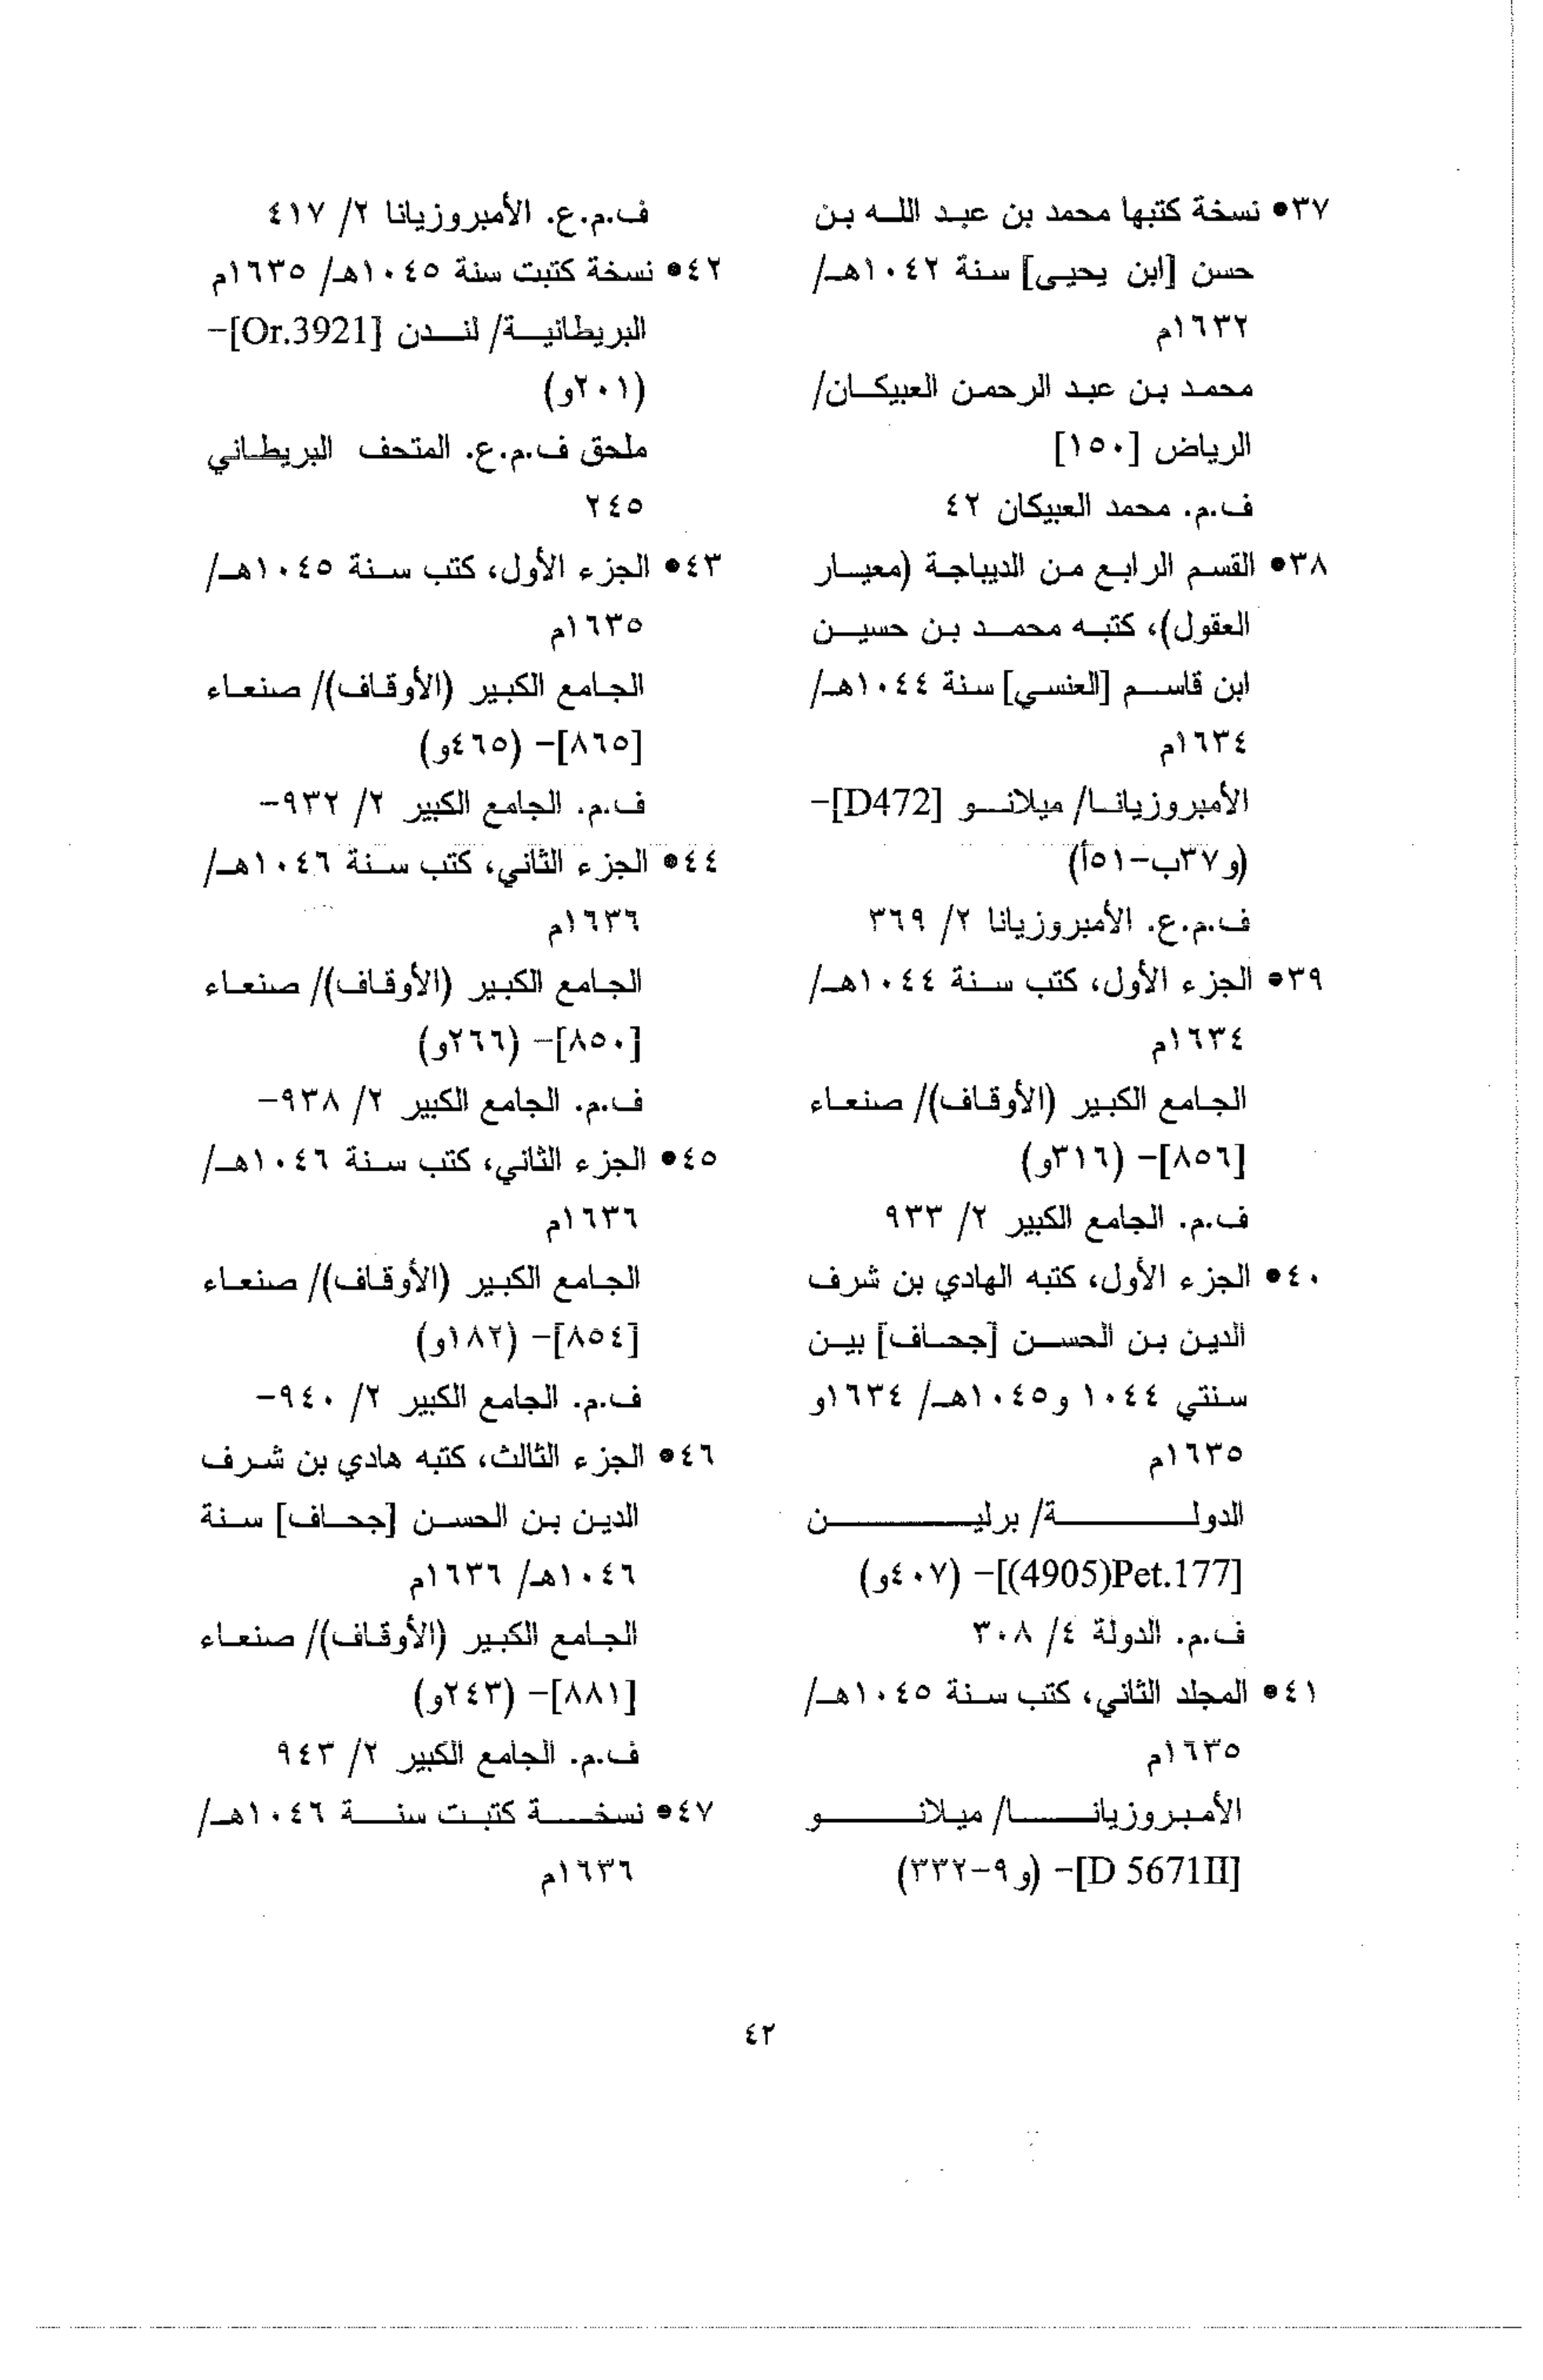 ٣٧• نسخة كتبها محمد بن عبد الله بن
حسن [ابن يحيى] سنة ١٠٤٢هـ/
١٦٣٢م
محمد بن عبد الرحمن العبيكان/
الرياض [١٥٠]
ف.م. محمد العبيكان ٤٢
٣٨• القسم الرابع من الديباجة (معيار
العقول)، كتبه محمد بن حسين
ابن قاسم [العنسي] سنة ١٠٤٤هـ/
١٦٣٤م
الأمبروزيانا/ ميلانو [D472]-
(و٣٧ب-٥١أ)
ف.م.ع. الأمبروزيانا ٢/ ٣٦٩
٣٩• الجزء الأول، كتب سنة ١٠٤٤هـ/
١٦٣٤م
الجامع الكبير (الأوقاف)/ صنعاء
[٨٥٦]- (٣١٦و)
ف.م. الجامع الكبير ٢/ ٩٣٣
٤٠• الجزء الأول، كتبه الهادي بن شرف
الدين بن الحسن [جحاف] بين
سنتي ١٠٤٤ و١٠٤٥هـ/ ١٦٣٤و
١٦٣٥م
الدولة/ برلين
[(4905)Pet.177]- (٤٠٧و)
ف.م. الدولة ٤/ ٣٠٨
٤١• المجلد الثاني، كتب سنة ١٠٤٥هـ/
١٦٣٥م
الأمبروزيانا/ ميلانو
[D 5671II]- (و٩-٣٣٢)
ف.م.ع. الأمبروزيانا ٢/ ٤١٧
٤٢• نسخة كتبت سنة ١٠٤٥هـ/ ١٦٣٥م
البريطانية/ لندن [Or.3921]-
(٢٠١و)
ملحق ف.م.ع. المتحف البريطاني
٢٤٥
٤٣• الجزء الأول، كتب سنة ١٠٤٥هـ/
١٦٣٥م
الجامع الكبير (الأوقاف)/ صنعاء
[٨٦٥]- (٤٦٥و)
ف.م. الجامع الكبير ٢/ ٩٣٢-
٤٤• الجزء الثاني، كتب سنة ١٠٤٦هـ/
١٦٣٦م
الجامع الكبير (الأوقاف)/ صنعاء
[٨٥٠]- (٢٦٦و)
ف.م. الجامع الكبير ٢/ ٩٣٨-
٤٥• الجزء الثاني، كتب سنة ١٠٤٦هـ/
١٦٣٦م
الجامع الكبير (الأوقاف)/ صنعاء
[٨٥٤]- (١٨٢و)
ف.م. الجامع الكبير ٢/ ٩٤٠-
٤٦• الجزء الثالث، كتبه هادي بن شرف
الدين بن الحسن [جحاف] سنة
١٠٤٦هـ/ ١٦٣٦م
الجامع الكبير (الأوقاف)/ صنعاء
[٨٨١]- (٢٤٣و)
ف.م. الجامع الكبير ٢/ ٩٤٣
٤٧• نسخة كتبت سنة ١٠٤٦هـ/
١٦٣٦م
٤٢